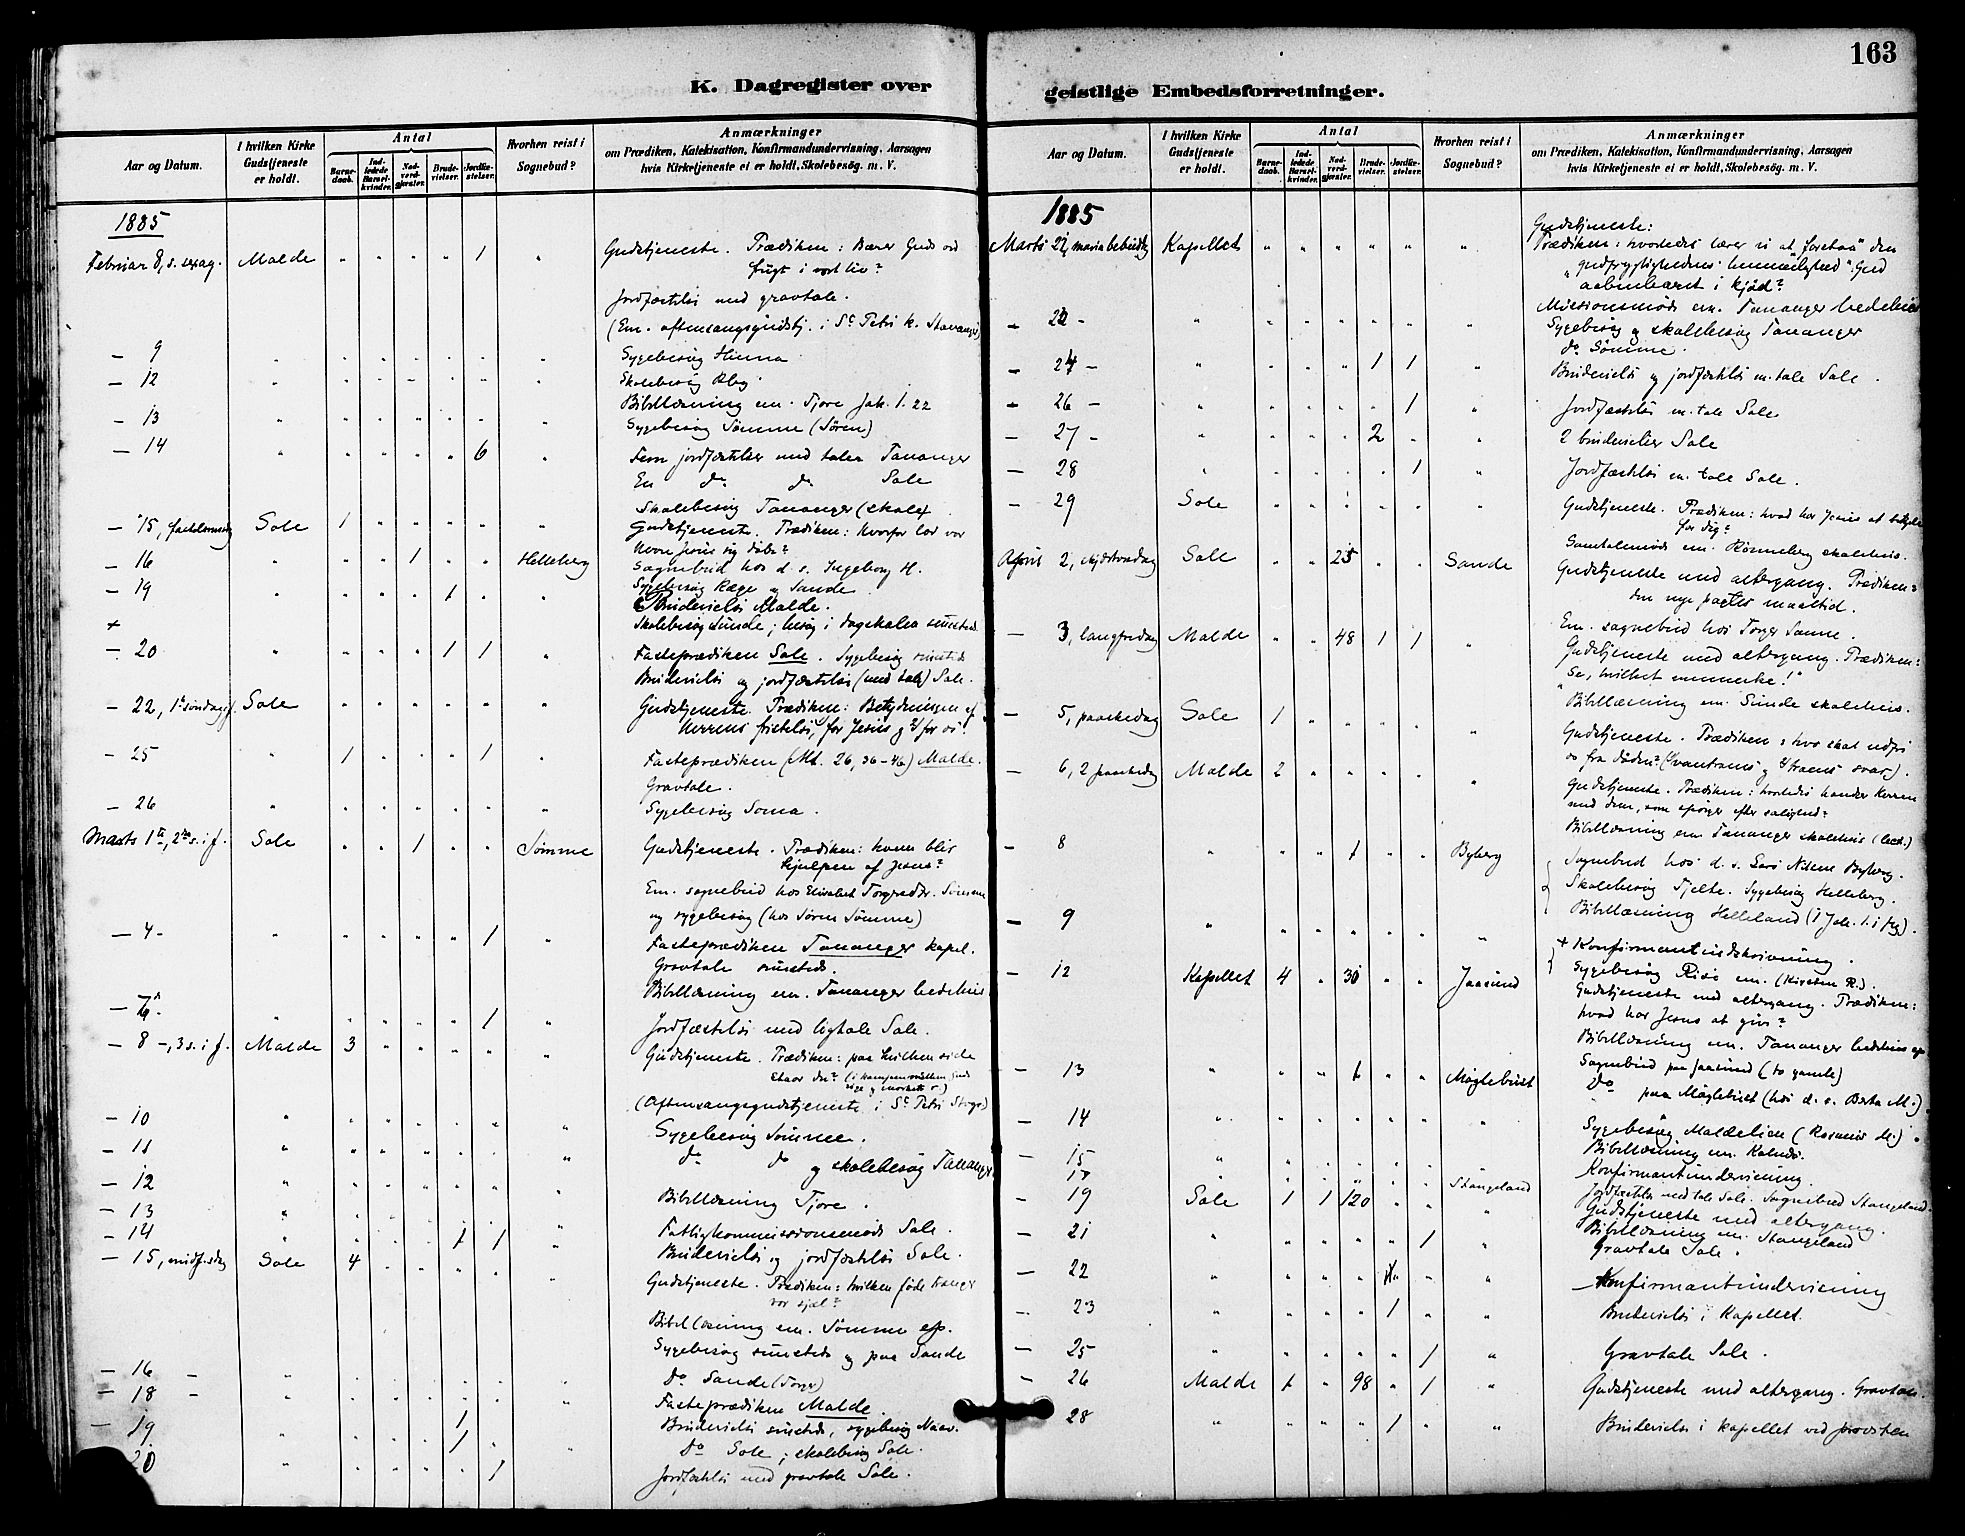 163
K. Dagregister over geistlige Embedsforretninger.
Aar og Datum.
I hvilken Kirke Gudstjeneste er holdt.
Antal
Barnedaab.
Indledede Barselkvinder.
Nadverdgjæster.
Brudevielser.
Jordfæstelser.
Hvorhen reist i Sognebud?
Anmærkninger
om Prædiken, Katekisation, Konfirmandundervisning, Aarsagen
hvis Kirketjeneste ei er holdt, Skolebesög. m. V.
1885
Februar 8, s. sexag. Malde " " " " 1 " Gudstjeneste. Prædiken: Bærer Guds ord
frugt i vort liv?
Jordfæstelse med gravtale.
(Em. aftensangsgudstj. i St. Petri k. Stavanger)
— 9 Sygebesøg Hinna
— 12 Skolebesøg
— 13 Bibellæsning em. Tjore Jak. 1. 22
Sygebesøg Sømme (Søren)
— 14 6 Fem jordfæstelser med taler Tananger
En do do Sole
Skolebesøg Tananger (skole)
— 15, fastelavnssøndag Sole 1 Gudstjeneste. Prædiken: Hvorfor lod vor
Herre Jesus sig døbe?
— 16 1 Helleberg Sognebud hos d. s. Ingeborg H.
— 19 1 Sygebesøg Ræge og Sande
Brudevielse Malde.
+ Skolebesøg Sunde; besøg i dagskolen smsteds.
— 20 1 1 Fasteprædiken Sole. Sygebesøg smsteds
Brudevielse og jordfæstelse (med tale) Sole.
— 22, 1ste søndag i f. Sole Gudstjeneste. Prædiken: Betydningen af
Herrens fristelse, for Jesus og for os?
— 25 1 1 Fasteprædiken (Mt. 26, 36-46) Malde.
Gravtale.
— 26 Sygebesøg Soma.
Marts 1te, 2den s. i f. Sole 1 Sømme Gudstjeneste. Prædiken: hvem blir
hjulpen af Jesus?
Em. sognebud hos Elisabet Sømme
og sygebesøg (hos Søren Sømme)
— 4 — 1 Fasteprædiken Tananger kapel.
Gravtale smsteds.
Bibellæsning em. Tananger bedehus
— 7 — 1 Jordfæstelse med ligtale Sole.
— 8 —, 3 s. i f. Malde 3 Gudstjeneste. Prædiken: paa hvilken side
staar du? (i kampen mellem Guds
rige og mørkets r.)
(Aftensangsgudstjeneste i St. Petri Stvgr)
— 10 Sygebesøg Sømme.
— 11 do do og skolebesøg Tananger
— 12 Bibellæsning Tjore.
— 13 Fattigkommissionsmøde Sole.
— 14 1 1 Brudevielse og jordfæstelse Sole.
— 15, midf.sdag Sole 4 Gudstjeneste. Prædiken: hvilken føde trænger
vor sjæl?
Bibellæsning em. Sømme
Sygebesøg smsteds og paa Sande
— 16 — do Sande (Torger)
— 18 — Fasteprædiken Malde.
— 19 1 Brudevielse smsteds, sygebesøg
1 do Sole; skolebesøg Sole.
20 1 Jordfæstelse med gravtale Sole.
Aar og Datum.
I hvilken Kirke Gudstjeneste er holdt.
Antal
Barnedaab.
Indledede Barselkvinder.
Nadverdgjæster.
Brudevielser.
Jordfæstelser.
Hvorhen reist i Sognebud?
Anmærkninger
om Prædiken, Katekisation, Konfirmandundervisning, Aarsagen
hvis Kirketjeneste ei er holdt, Skolebesög. m. V.
1885
Marts 22, maria bebud. Kapellet Gudstjeneste:
Prædiken: hvorledes lærer vi at forstaa den
"gudfrygtighedens hemmelighed": Gud
aabenbaret i kjød?
Missionsmøde em. Tananger bedehus
Sygebesøg og skolebesøg Tananger
do Sømme.
— 24 — 1 1 Brudevielse og jordfæstelse m. tale Sole.
— 26 — 1 Jordfæstelse m. tale Sole
— 27 — 2 2 brudevielser Sole
— 28 1 Jordfæstelse m. tale Sole.
— 29 Sole Gudstjeneste. Prædiken: hvad har Jesus at betyde
for dig?
Samtalemøde em. Rønneberg skolehus.
April 2, skjærtorsdag Sole 25 Sande Gudstjeneste med altergang. Prædiken:
den nye pagtes maaltid.
Em. sognebud hos Torger Sande.
— 3, langfredag Malde 48 1 1 Gudstjeneste med altergang. Prædiken:
"Se, hvilket menneske!"
Bibellæsning em. Sunde skolehus.
— 5, paaskedag Sole 1 Gudstjeneste. Prædiken: hvo skal udfri
os fra døden? (Vantroens og troens svar).
— 6, 2 paaskedag Malde 2 Gudstjeneste. Prædiken: hvorledes handler Herren
med dem, som spørger efter salighed?
Bibellæsning em. Tananger skolehus
— 8 1 Byberg Sognebud hos d. s. Byberg.
Skolebesøg Tjelte. Sygebesøg Helleberg.
— 9 Bibellæsning Helleland
+ Konfirmantindskrivning.
Sygebesøg Risø em. (Kirsten R.).
— 12 Kapellet 4 30 Jaasund Gudstjeneste med altergang. Prædiken:
hvad har Jesus at give?
Bibellæsning em. Tananger bedehus
Sognebud paa Jaasund (to gamle)
— 13 1 Møglebust do paa Møglebust (hos d. s. Berta M.)
— 14 Sygebesøg Maldelien
— 15 Bibellæsning em. Kolnes.
Konfirmantundervisning.
Stangeland Jordfæstelse med tale Sole. Sognebud Stangeland.
— 19 Sole 1 1 120 Gudstjeneste med altergang.
Bibellæsning em. Stangeland
— 21 1 Gravtale Sole.
— 22 Konfirmantundervisning
— 23 1 Brudevielse i Kapellet.
— 25 1 Gravtale Sole.
— 26 Malde 1 98 1 Gudstjeneste med altergang. Gravtale.
— 28 1 Brudevielse i kapellet ved provsten